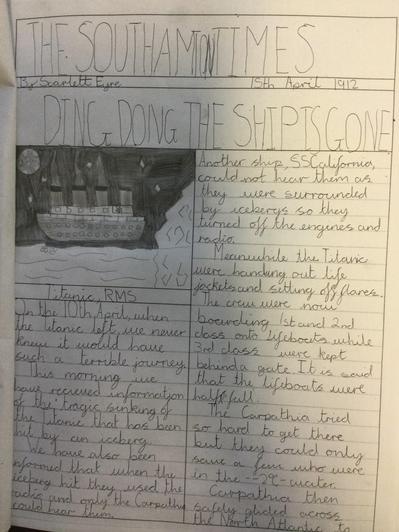 THE SOUTHAMTON TIMES
By Scarlett Eyre 15th April 1912
DING DONG THE SHIP IS GONE
Titanic, RMS
On the 10th April, when
the titanic left, we never
knew it would have
such a terrible journey.
This morning we
have recieved information
of the tragic sinking of
the Titanic that has been
hit by an iceberg.
We have also been
informed that when the
iceberg hit they used the
radio and only the Carpathia
could hear them.
Another ship, SSCalifornia,
could not hear them as
they were surrounded
by icebergs so they
turned off the engines and
radio.
Meanwhile the Titanic
were handing out life
jackets and sitting off flares.
The crew were now
boarding 1st and 2nd
class onto lifeboats while
3rd class were kept
behind a gate. It is said
that the lifeboats were
half full.
The Carpathia tried
so hard to get there
but they could only
save a few who were
in the -2° water.
Carpathia then
safely glided across
the North Atlantic to